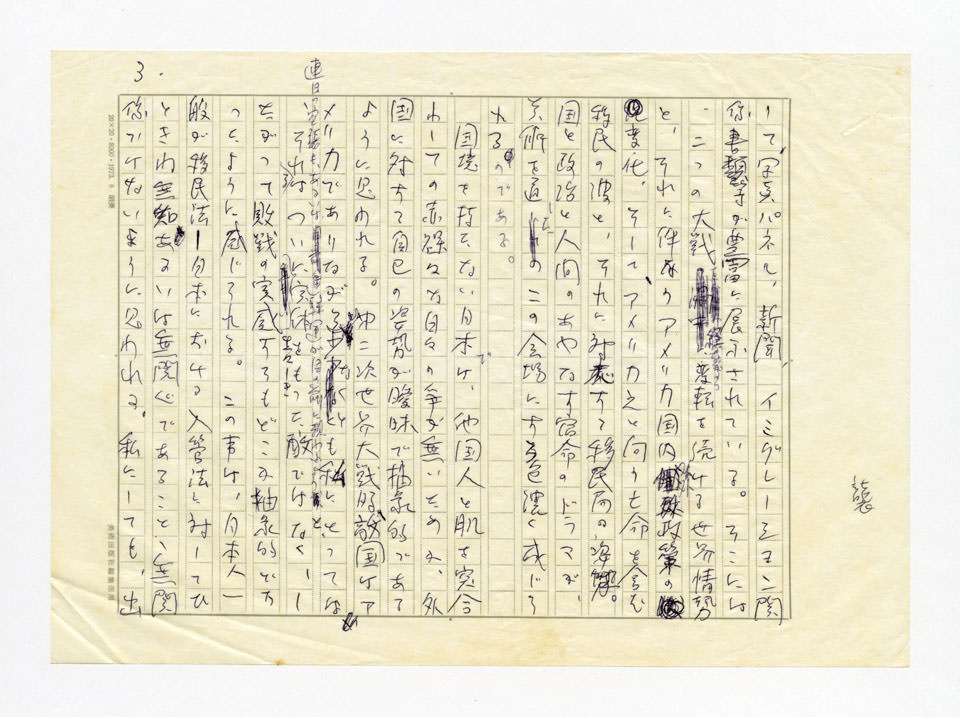 3.
して、写真パネル、新聞、イミグレーション関
係書類等が豊富に展示されている。そこには
二つの大戦、変転を続ける世界情勢
と、それに伴なうアメリカ国内政策の
変化、そして、アメリカへと向う亡命を含む
移民の波と、それに対応する移民局の姿勢。
国と政治と人間のあやなす宿命のドラマが、
美術を通したこの会場にも色濃く感じら
れるのである。
国境を持たない日本では、他国人と肌を突合
わしての赤裸々な日々の争が無いためか、外
国に対して自己の姿勢が曖昧で抽象的である
ように思われる。第二次世界大戦時敵国はア
メリカでありながら、少なくとも私にとっては
連日の空襲も
それはついに実体をもった敵ではなく、し
生々しさ
たがって敗戦の実感すらもどこか抽象的だ
ったように感じられる。この事は、日本人一
般が移民法―日本における入管法に対してひ
ときわ無知あるいは無関心であることと無関
係ではないように思われる。私にしても、出
襲
20×20